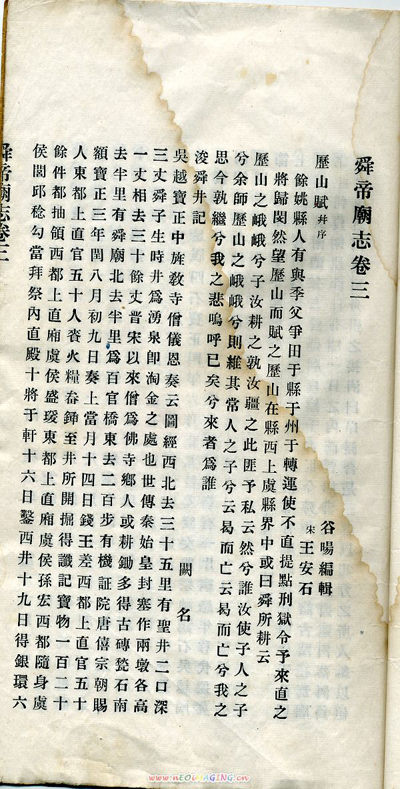 舜帝廟志卷三
谷暘編輯
歷山賦并序
宋王安石
餘姚縣人有與季父爭田于縣于州于轉運使不直提點刑獄令予來直之
將歸閔然望歷山而賦之歷山在縣西上虞縣界中或曰舜所耕云
歷山之峨峨兮予汝耕之孰汝疆之此匪予私云然兮誰汝使子人之子
兮余師歷山之峨峨兮則維其常人之子兮云曷而亡云曷而亡兮我之
思今孰繼兮我之悲嗚呼已矣兮來者爲誰
浚舜井記
闕名
吳越寶正中旌教寺僧儀恩奏云圖經西北去三十五里有聖井二口深
三丈舜子生時井爲湧泉卽淘金之處也世傳秦始皇封塞作兩墩各高
一丈相去三十餘丈晋宋以來僧爲佛寺鄉人或耕鋤多得古磚甃石南
去半里有舜廟北去半里爲百官橋東去二百步有機証院唐僖宗朝賜
額寶正三年閏八月初九日奏上當月十四日錢王差西都上直官五十
人東都上直官五十人賫火糧畚鍤至井所開掘得讖記寶物一百二十
餘件都抽領西都上直廂虞侯盛瑗東都上直廂虞侯孫宏西都隨身虞
侯閭邱稔勾當拜祭內直殿十將于軒十六日鑿西井十九日得銀環六
舜帝廟志卷三
www.nEOIMAGING.cn